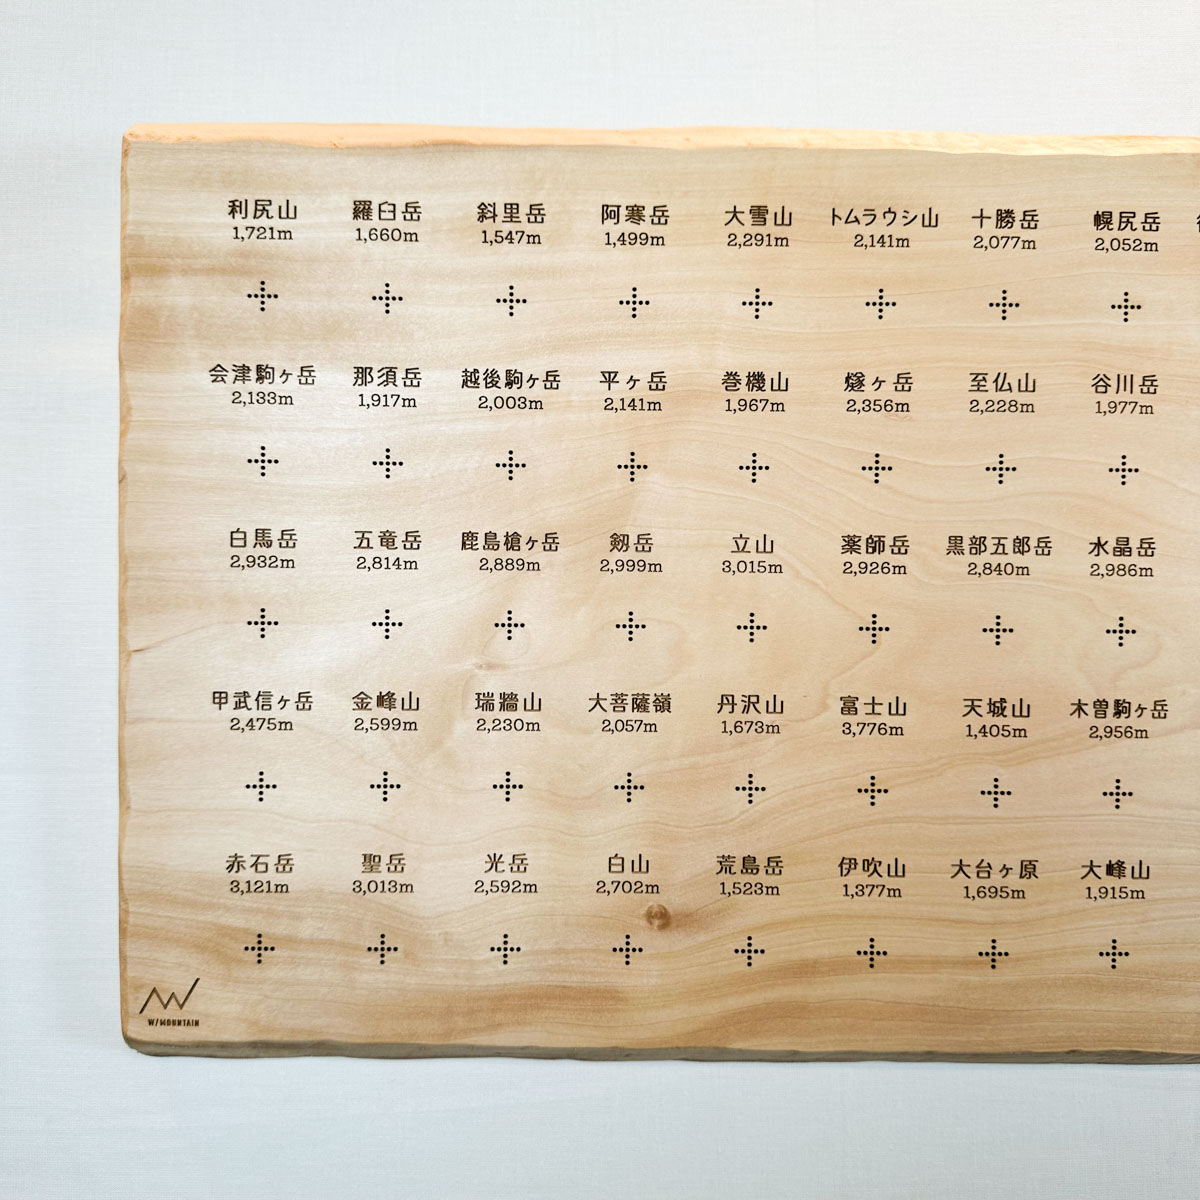 利尻山 羅臼岳 斜里岳 阿寒岳 大雪山 トムラウシ山 十勝岳 幌尻岳
1,721m 1,660m 1,547m 1,499m 2,291m 2,141m 2,077m 2,052m
会津駒ヶ岳 那須岳 越後駒ヶ岳 平ヶ岳 巻機山 燧ヶ岳 至仏山 谷川岳
2,133m 1,917m 2,003m 2,141m 1,967m 2,356m 2,228m 1,977m
白馬岳 五竜岳 鹿島槍ヶ岳 剱岳 立山 薬師岳 黒部五郎岳 水晶岳
2,932m 2,814m 2,889m 2,999m 3,015m 2,926m 2,840m 2,986m
甲武信ヶ岳 金峰山 瑞牆山 大菩薩嶺 丹沢山 富士山 天城山 木曽駒ヶ岳
2,475m 2,599m 2,230m 2,057m 1,673m 3,776m 1,405m 2,956m
赤石岳 聖岳 光岳 白山 荒島岳 伊吹山 大台ヶ原 大峰山
3,121m 3,013m 2,592m 2,702m 1,523m 1,377m 1,695m 1,915m
W/MOUNTAIN